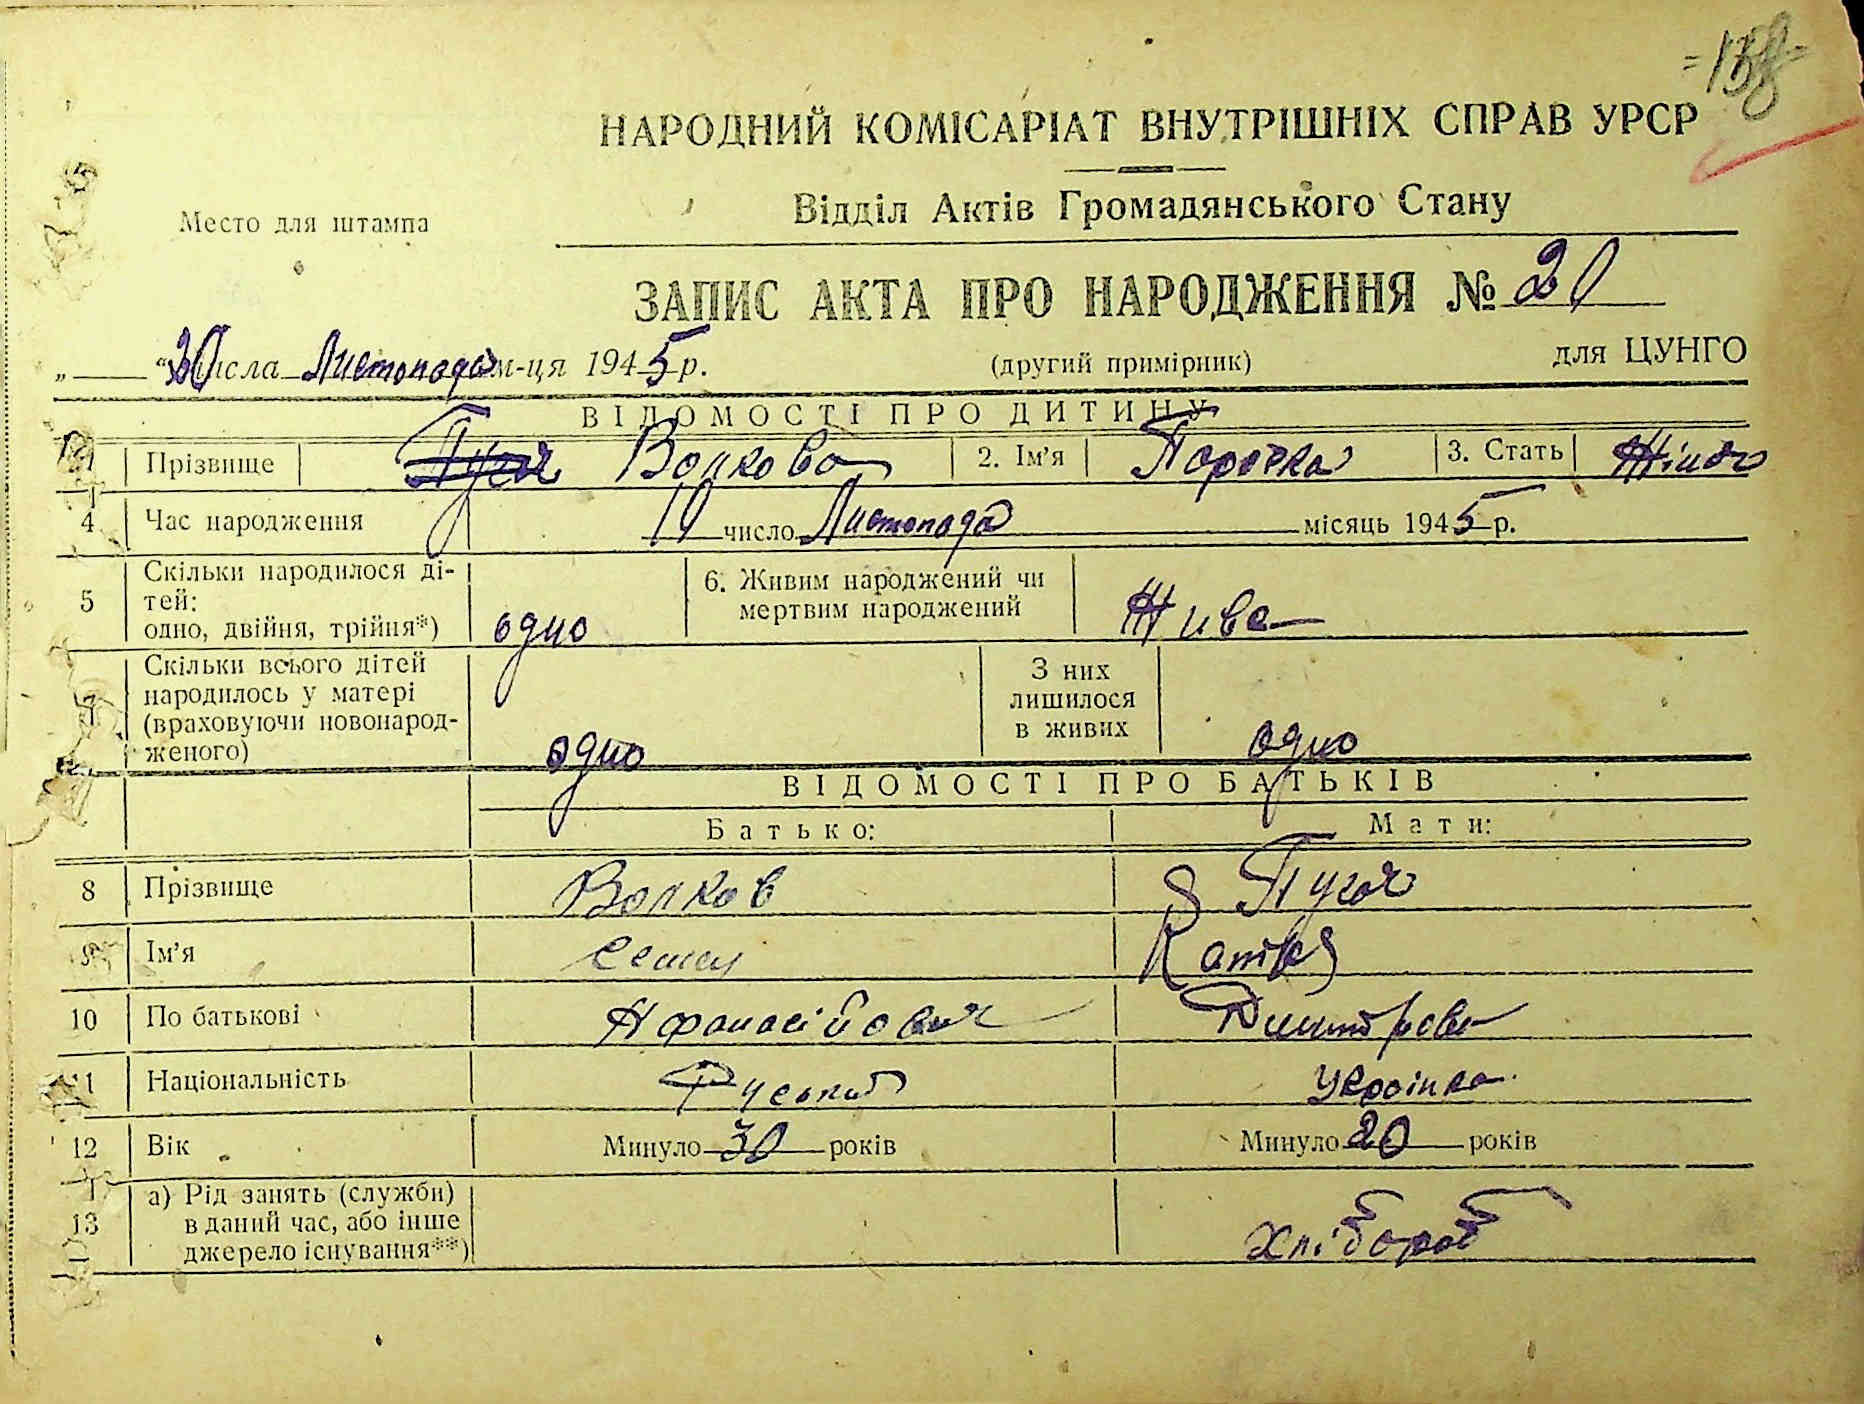 =138
НАРОДНИЙ КОМІСАРІАТ ВНУТРІШНІХ СПРАВ УРСР
Место для штампа
Відділ Актів Громадянського Стану
ЗАПИС АКТА ПРО НАРОДЖЕННЯ № 20
„ “ 30 числа Листопада м-ця 1945 р. (другий примірник) для ЦУНГО
ВІДОМОСТІ ПРО ДИТИНУ
Прізвище Пугач Волкова 2. Ім'я 3. Стать
4 Час народження 19 число Листопада місяць 1945 р.
5 Скільки народилося дітей: одно, двійня, трійня*) одно 6. Живим народжений чи мертвим народжений Жива
7 Скільки всього дітей народилось у матері (враховуючи новонародженого) одно З них лишилося в живих одно
ВІДОМОСТІ ПРО БАТЬКІВ
Батько: Мати:
8 Прізвище Волков Пугач
9 Ім'я
10 По батькові Афанасійович Дмитрівна
11 Національність Руський Українка
12 Вік Минуло 30 років Минуло 20 років
13 а) Рід занять (служби) в даний час, або інше джерело існування**) Хлібороб